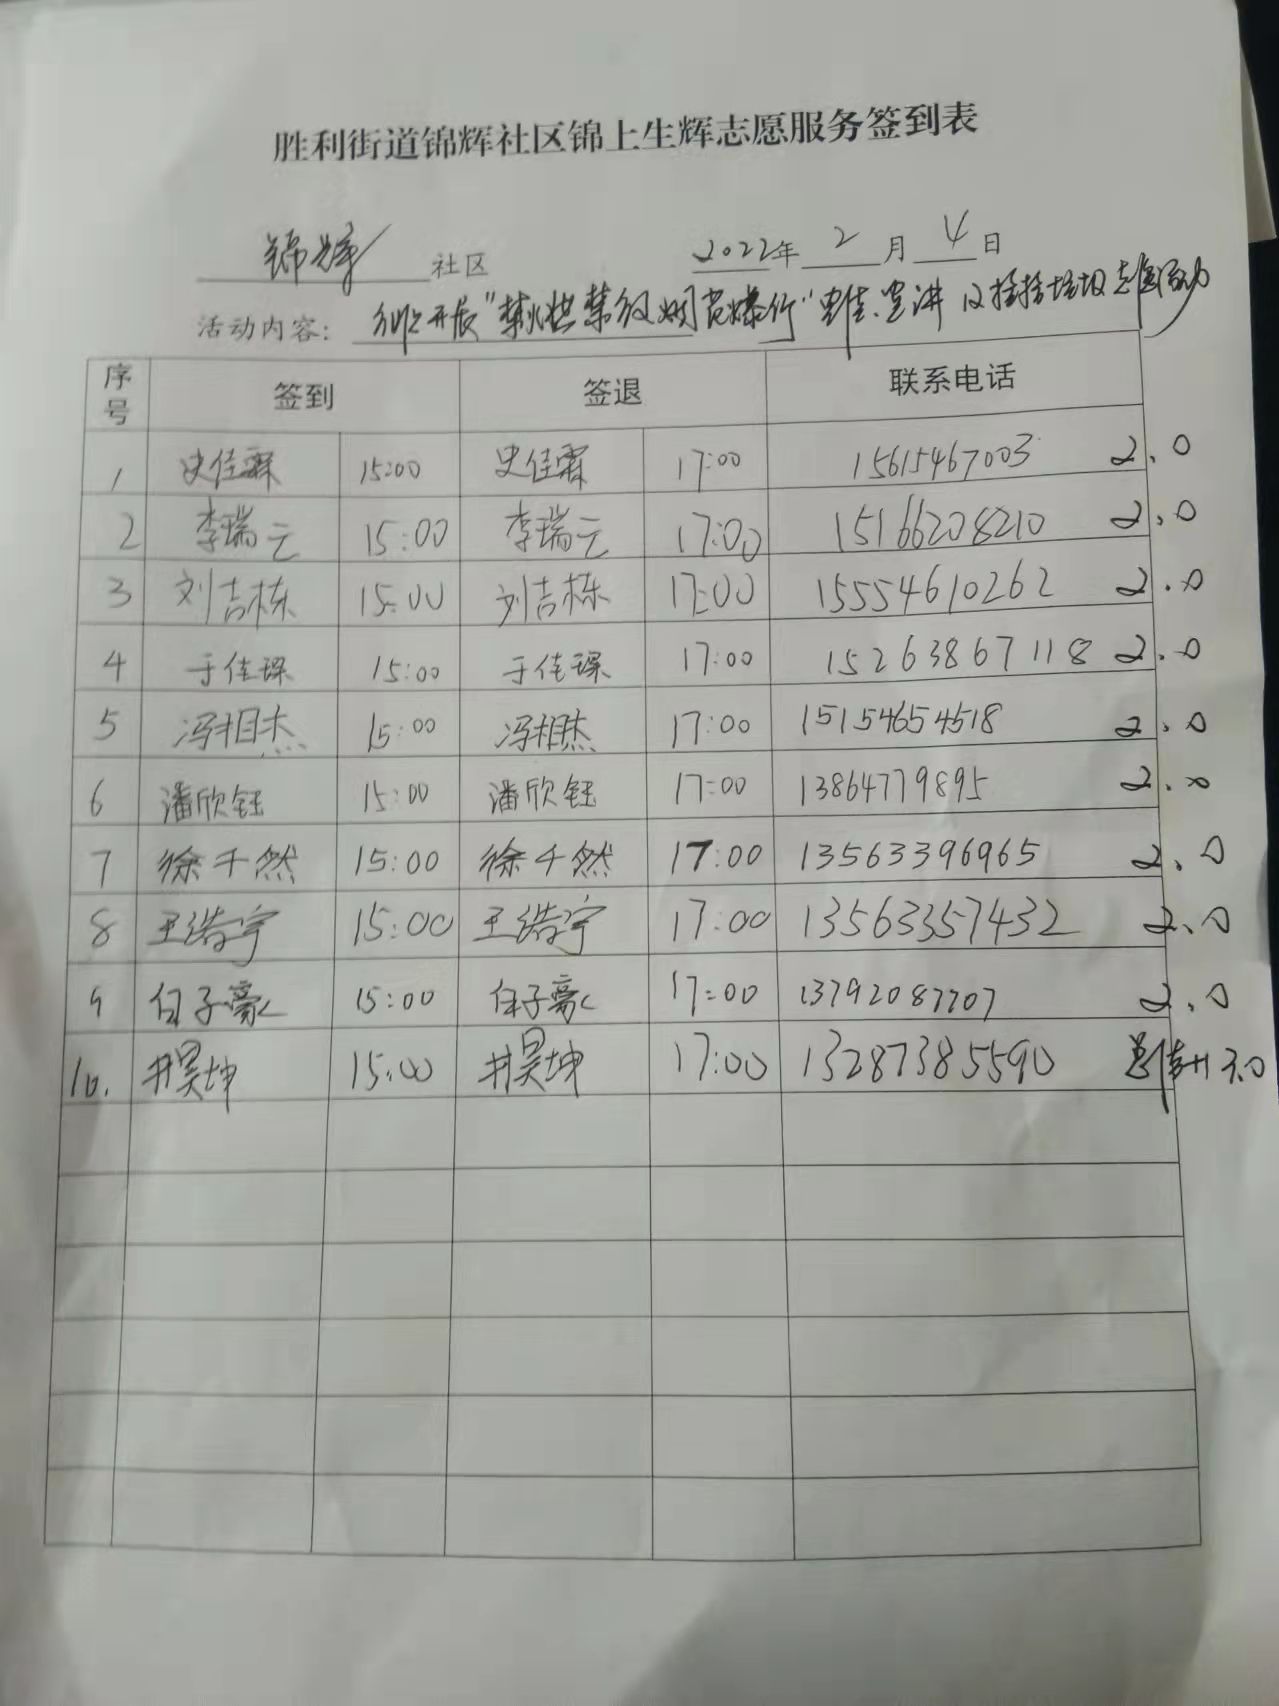 胜利街道锦辉社区锦上生辉志愿服务签到表
锦辉 社区 2022年 2 月 4 日
活动内容: 开展"禁 禁放烟花爆竹" 宣讲 及捡拾垃圾志愿活动
序号 签到 签退 联系电话
1 史佳霖 15:00 史佳霖 17:00 15615467003 2.0
2 李瑞云 15:00 李瑞云 17:00 15166208210 2.0
3 刘吉栋 15:00 刘吉栋 17:00 15554610262 2.0
4 于佳琛 15:00 于佳琛 17:00 15263867118 2.0
5 冯相杰 15:00 冯相杰 17:00 15154654518 2.0
6 潘欣钰 15:00 潘欣钰 17:00 13864779895 2.0
7 徐千然 15:00 徐千然 17:00 13563396965 2.0
8 王浩宇 15:00 王浩宇 17:00 13563357432 2.0
9 任子豪 15:00 任子豪 17:00 13792087707 2.0
10. 井昊坤 15:00 井昊坤 17:00 13287385590 3.0